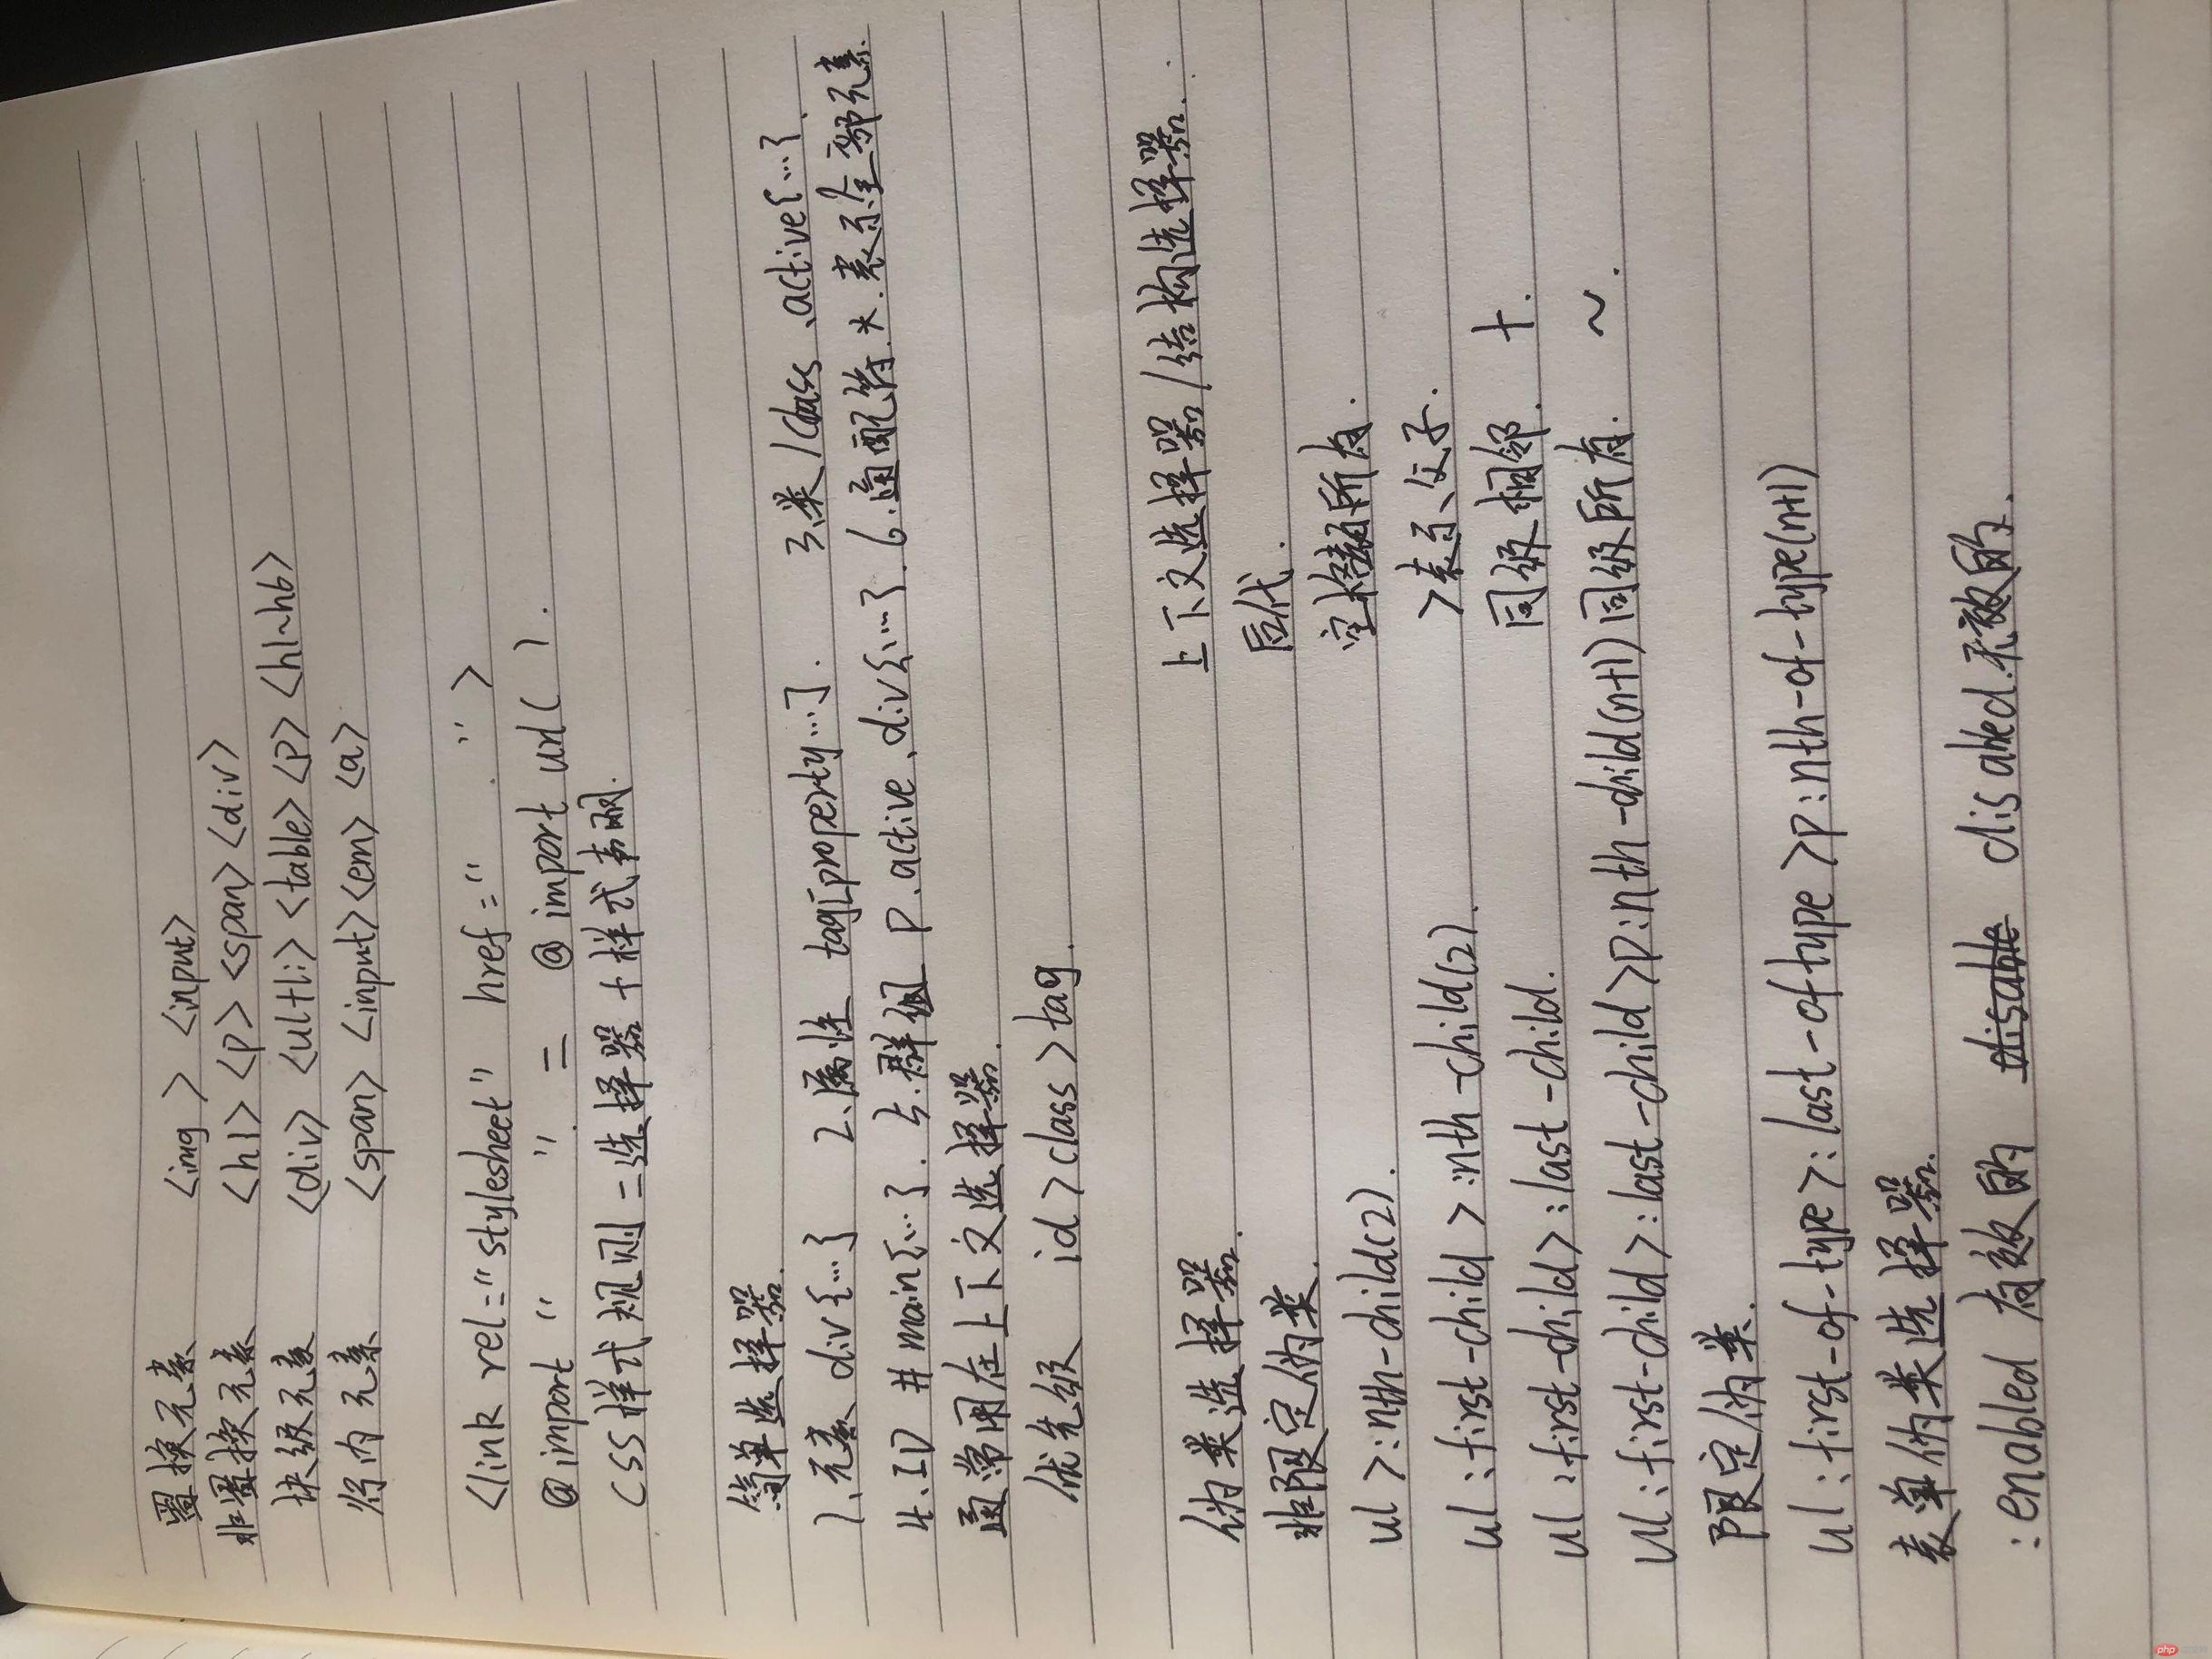 置换元素 <img> <input>
非置换元素 <h1> <p> <span> <div>
块级元素 <div> <ul+li> <table> <p> <h1~h6>
行内元素 <span> <input> <em> <a>
<link rel="stylesheet" href=" . ">
@import " " = @import url( ) .
CSS样式规则=选择器+样式声明.
简单选择器.
1.元素 div{...} 2.属性 tag[property...]. 3.类/class .active{...}.
4.ID #main{...}. 5.群组 p.active、div{...}. 6.通配符.*.表示全部元素.
通常用在上下文选择器.
优先级 id>class>tag.
伪类选择器.
非限定伪类.
ul >:nth-child(2).
ul :first-child > :nth-child(2).
ul :first-child>:last-child.
ul:first-child>:last-child>p:nth-child(n+1)
限定伪类.
ul :first-of-type>:last-of type>p:nth-of-type(n+1)
表单伪类选择器.
:enabled 有效的 disabled 无效的.
上下文选择器/结构选择器.
后代.
空格 所有.
>表示父子.
同级相邻. +.
同级所有. ~.
php